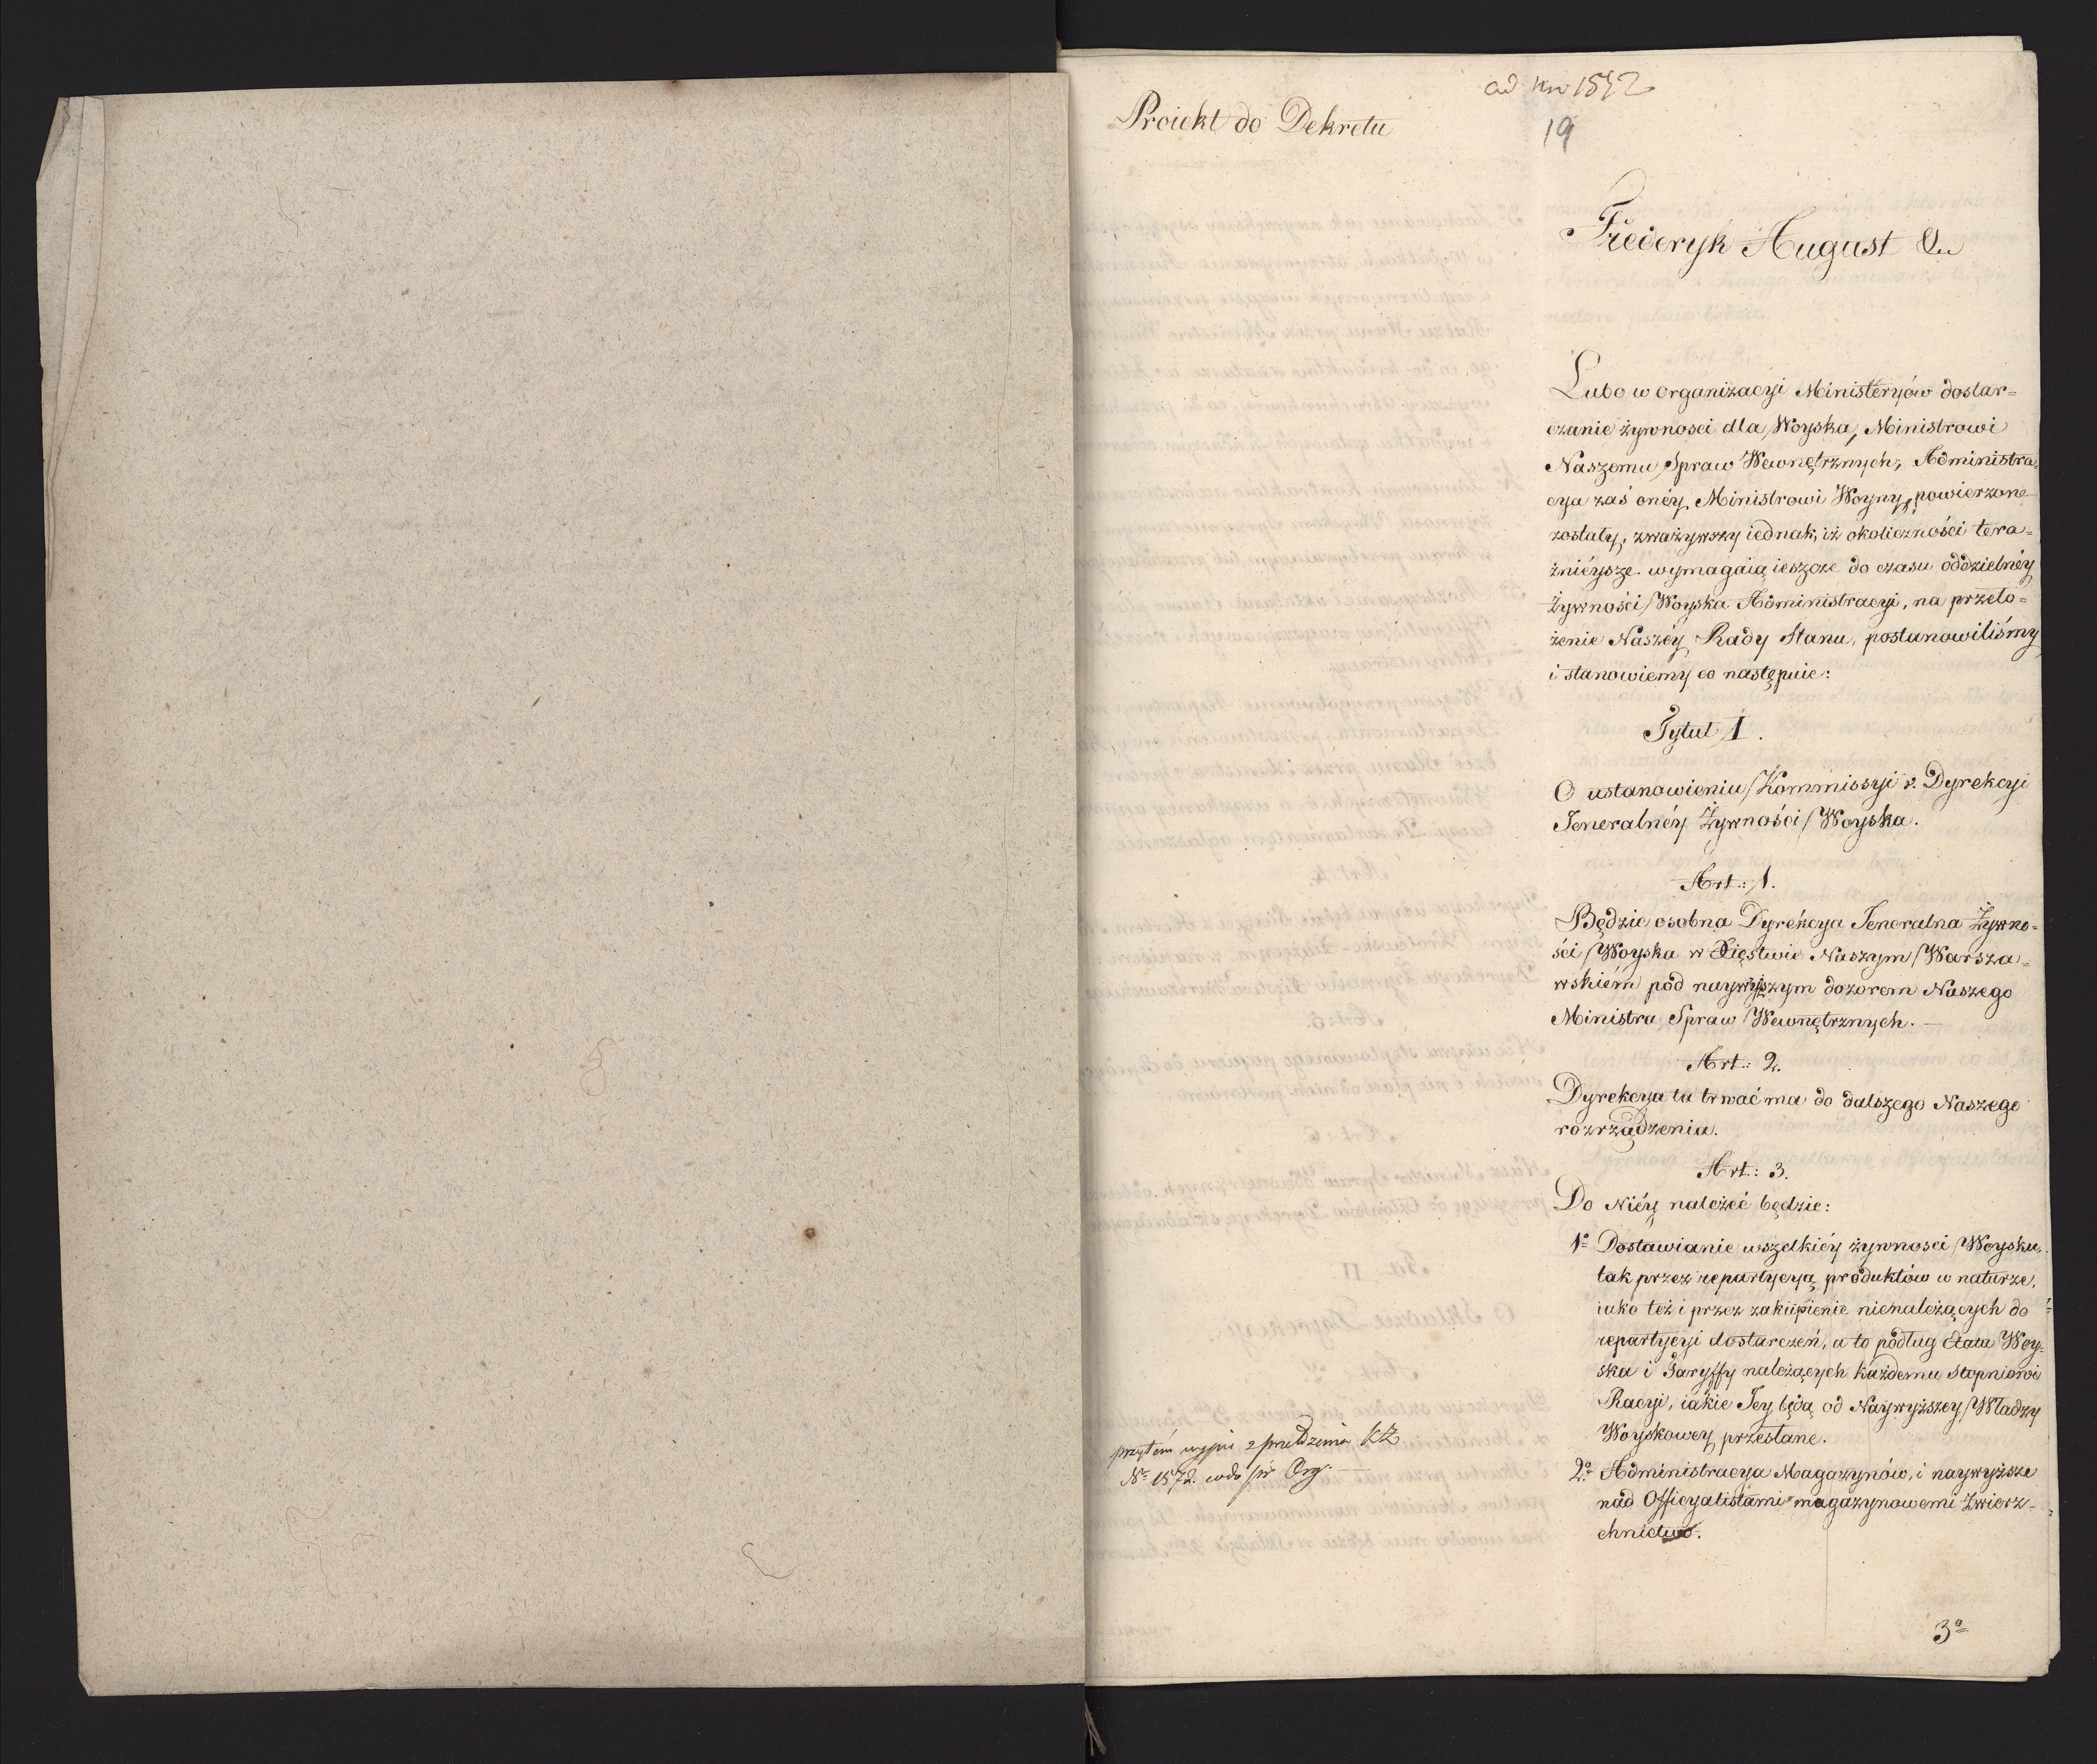 ad Nro 15
19
Proiekt do Dekretu
Frederyk August &c
Lubo w organizacyi Ministeryów dostar=
czanie żywnosci dla Woyska, Ministrowi
Naszemu Spraw Wewnętrznych, Administra=
cya zaś onéy Ministrowi Woyny, powierzone
zostały, zważywszy iednak, iż okoliczności tera=
źniéysze wymagaią ieszcze do czasu oddzielnéy
Żywności Woyska Administracyi, na przeło=
żenie Naszéy Rady Stanu, postanowiliśmy
i stanowiemy co następuie:
Tytuł I.
O ustanowieniu Kommissyi v. Dyrekcyi
Jeneralnéy Żywności Woyska.
Art: 1.
Będzie osobna Dyrekcya Jeneralna Żywno=
ści Woyska w Xięstwie Naszym Warsza=
wskiém pod naywyższym dozorem Naszego
Ministra Spraw Wewnętrznych. —
Art: 2.
Dyrekcya ta trwać ma do dalszego Naszego
rozrządzenia.
Art: 3.
Do Niéy należeć będzie:
1º Dostawianie wszelkiéy żywnosci Woysku,
tak przez repartycyą produktów w naturze,
iako też i przez zakupienie nienależących do
repartycyi dostarczeń, a to podług Etatu Woy=
ska i Taryffy należących każdemu stopniowi
Racyi, iakie Jey będą od Naywyższey Władzy
Woyskowey przesłane.
2º Administracya Magazynów, i naywyższe
nad Officyalistami magazynowemi Zwierz=
chnictwo.
przytém
Nº 1572. Org.
3º